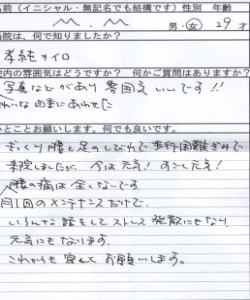 名前（イニシャル・無記名でも結構です）性別 年齢
M.M 男・女 29才
当院は、何で知りましたか？
孝純カイロ
院内の雰囲気はどうですか？ 何かご質問はありますか？
写真などがあり 雰囲気 いいです!!
ひとことお願いします。何でも良いです。
ぎっくり腰と足のしびれで歩行困難すれすれで
来院しましたが、今は元気！すごく元気！
腰の痛は全くないです。
月1回のメンテナンスだけで、
いろんな話をして ストレス発散にもなり
元気にもなります。
これからも宜しくお願いします。